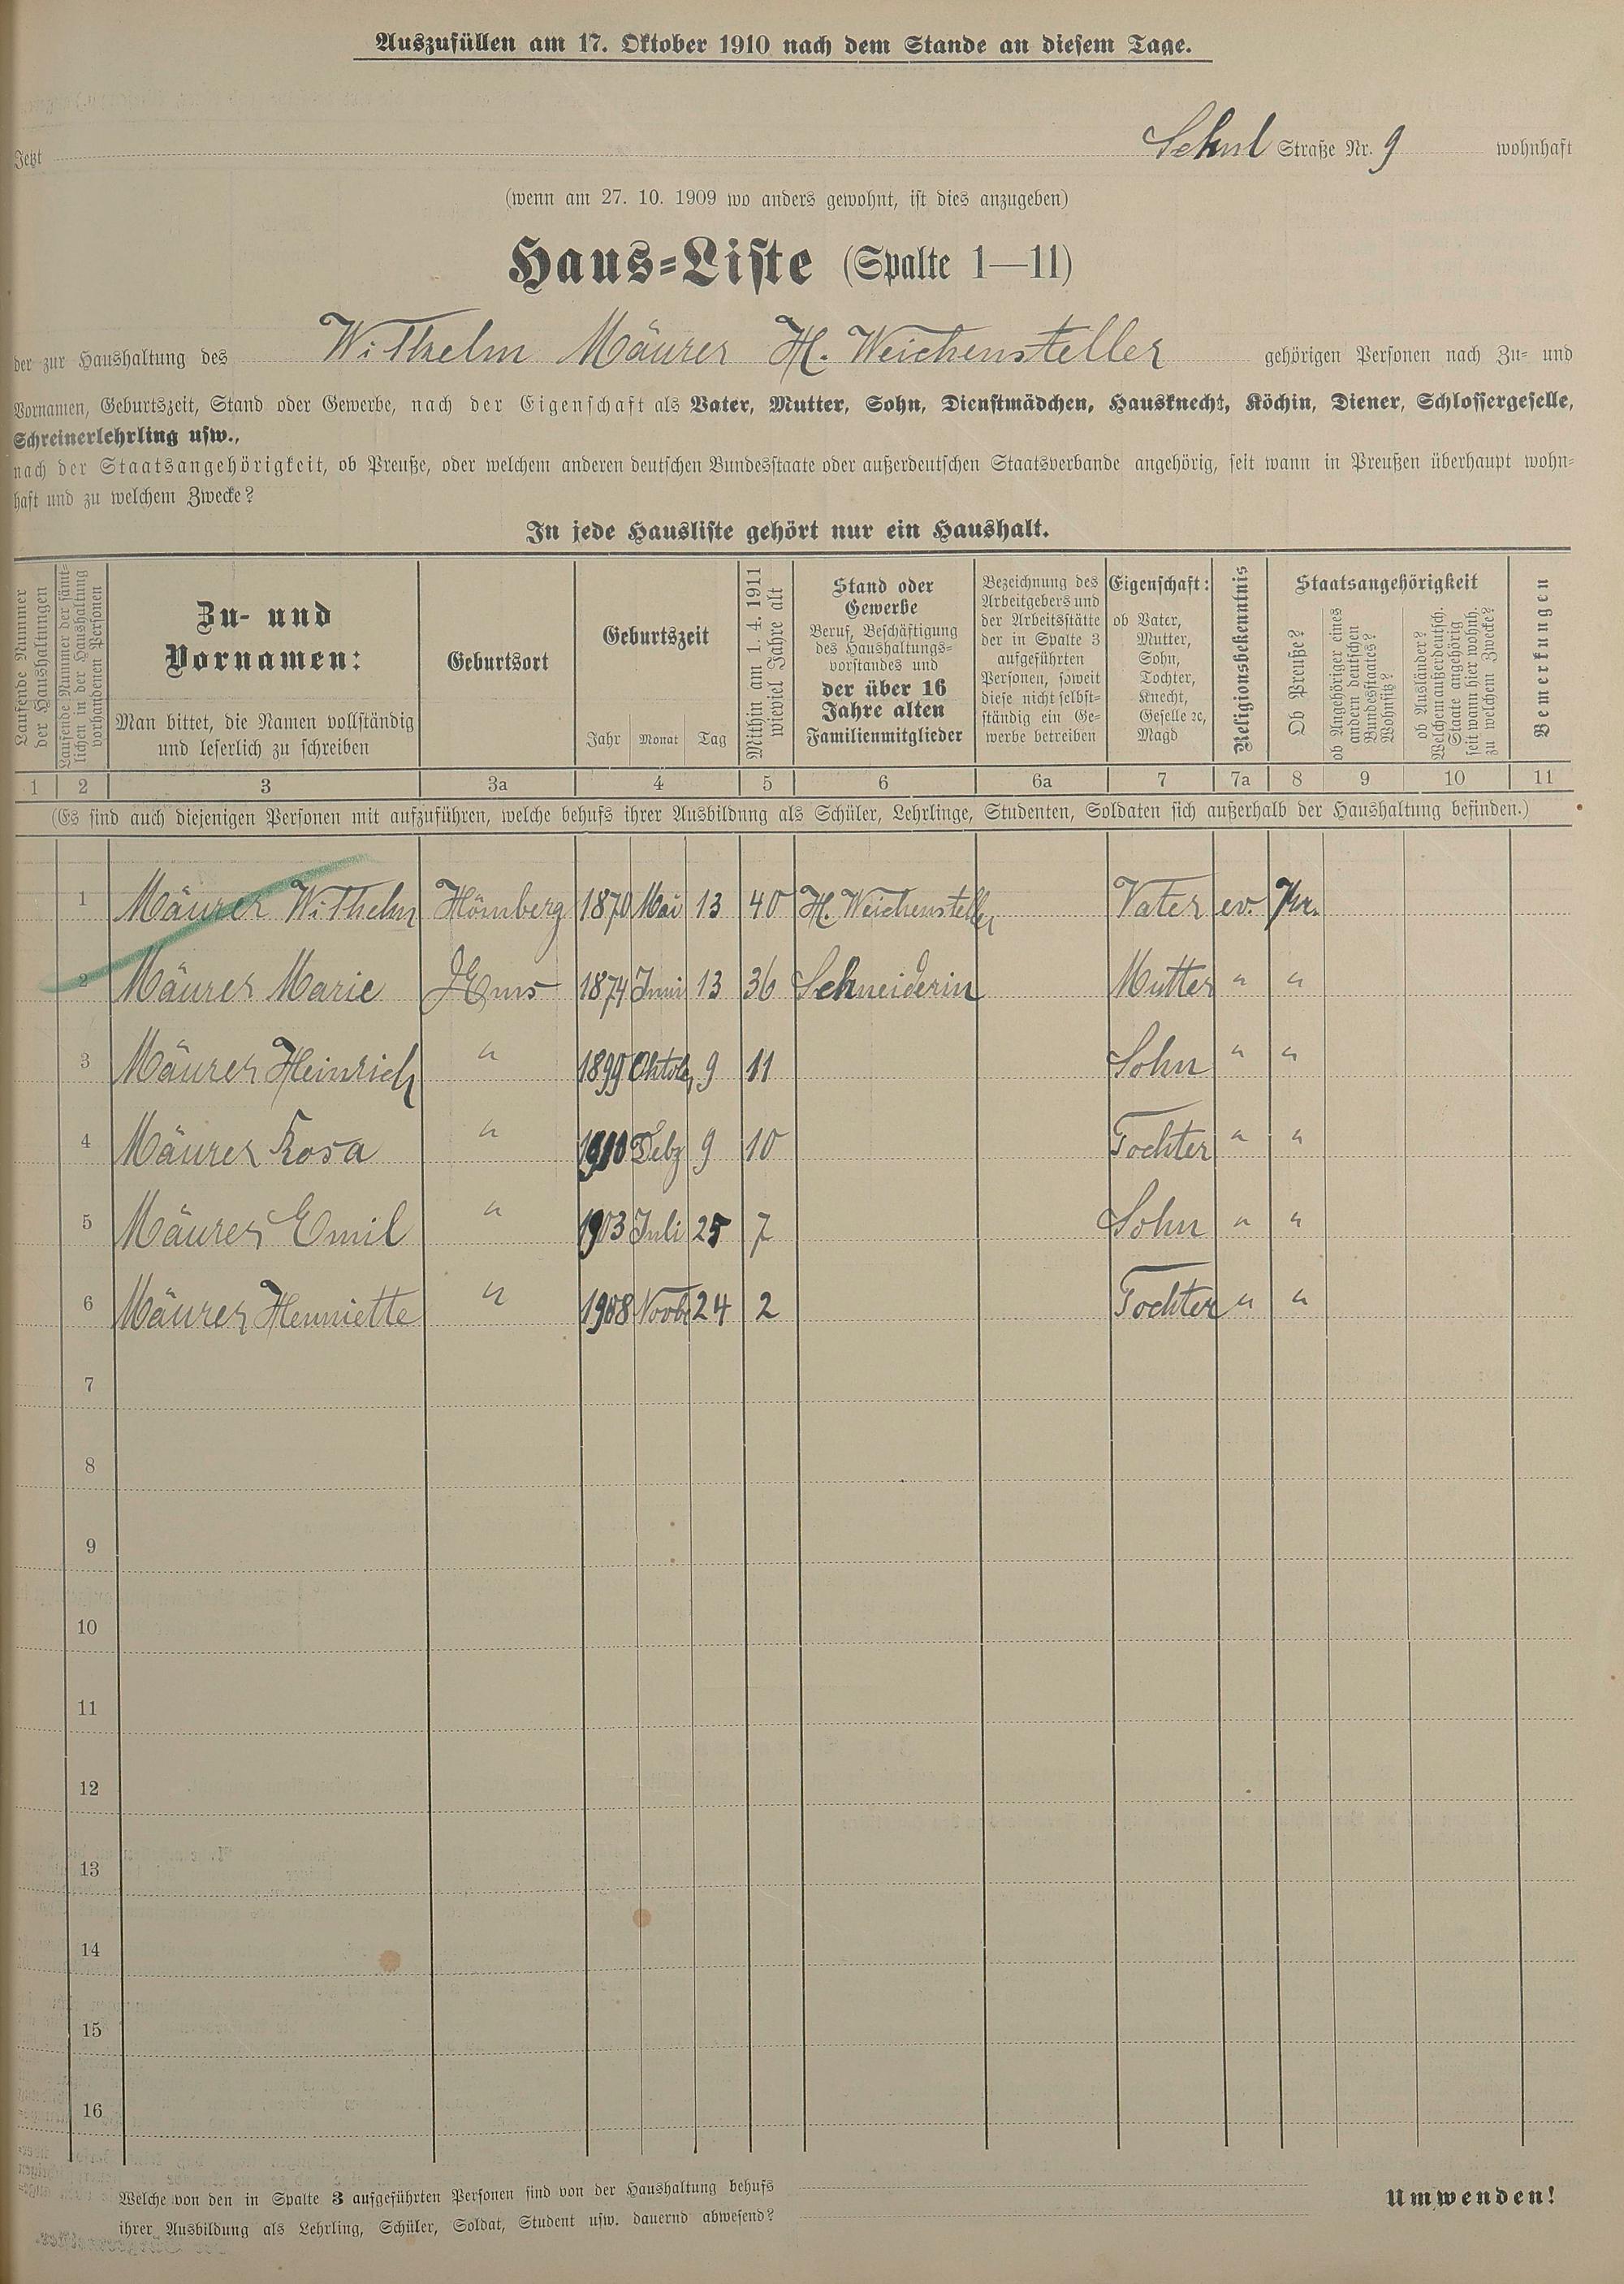 Auszufüllen am 17. Oktober 1910 nach dem Stande an diesem Tage.
Jetzt Schul Straße Nr. 9 wohnhaft
(wenn am 27. 10. 1909 wo anders gewohnt, ist dies anzugeben)
Haus=Liste (Spalte 1—11)
der zur Haushaltung des Wilhelm Mäurer H. Weichensteller gehörigen Personen nach Zu= und
Vornamen, Geburtszeit, Stand oder Gewerbe, nach der Eigenschaft als Vater, Mutter, Sohn, Dienstmädchen, Hausknecht, Köchin, Diener, Schlossergeselle,
Schreinerlehrling usw.,
nach der Staatsangehörigkeit, ob Preuße, oder welchem anderen deutschen Bundesstaate oder außerdeutschen Staatsverbande angehörig, seit wann in Preußen überhaupt wohn=
haft und zu welchem Zwecke?
In jede Hausliste gehört nur ein Haushalt.
Laufende Nummer
der Haushaltungen
Laufende Nummer der sämt=
lichen in der Haushaltung
vorhandenen Personen
Zu- und
Vornamen:
Man bittet, die Namen vollständig
und leserlich zu schreiben
Geburtsort
Geburtszeit
Jahr Monat Tag
Mithin am 1. 4. 1911
wieviel Jahre alt
Stand oder
Gewerbe
Beruf, Beschäftigung
des Haushaltungs=
vorstandes und
der über 16
Jahre alten
Familienmitglieder
Bezeichnung des
Arbeitgebers und
der Arbeitsstätte
der in Spalte 3
aufgeführten
Personen, soweit
diese nicht selbst=
ständig ein Ge=
werbe betreiben
Eigenschaft:
ob Vater,
Mutter,
Sohn,
Tochter,
Knecht,
Geselle ꝛc,
Magd
Religionsbekenntnis
Staatsangehörigkeit
Ob Preuße?
ob Angehöriger eines
andern deutschen
Bundesstaates?
Wohnsitz?
ob Ausländer?
Welchem außerdeutsch.
Staate angehörig
seit wann hier wohnh.
zu welchem Zwecke?
Bemerkungen
1 2 3 3a 4 5 6 6a 7 7a 8 9 10 11
(Es sind auch diejenigen Personen mit aufzuführen, welche behufs ihrer Ausbildung als Schüler, Lehrlinge, Studenten, Soldaten sich außerhalb der Haushaltung befinden.)
1 Mäurer Wilhelm Hömberg 1870 Mai 13 40 H. Weichensteller Vater ev. Pr.
2 Mäurer Marie Ems 1874 Juni 13 36 Schneiderin Mutter " "
3 Mäurer Heinrich " 1899 Oktob 9 11 Sohn " "
4 Mäurer Rosa " Debz 9 10 Tochter " "
5 Mäurer Emil " 1903 Juli 25 7 Sohn " "
6 Mäurer Henriette " 1908 Novbr 24 2 Tochter " "
7
8
9
10
11
12
13
14
15
16
Welche von den in Spalte 3 aufgeführten Personen sind von der Haushaltung behufs
ihrer Ausbildung als Lehrling, Schüler, Soldat, Student usw. dauernd abwesend?
Umwenden!